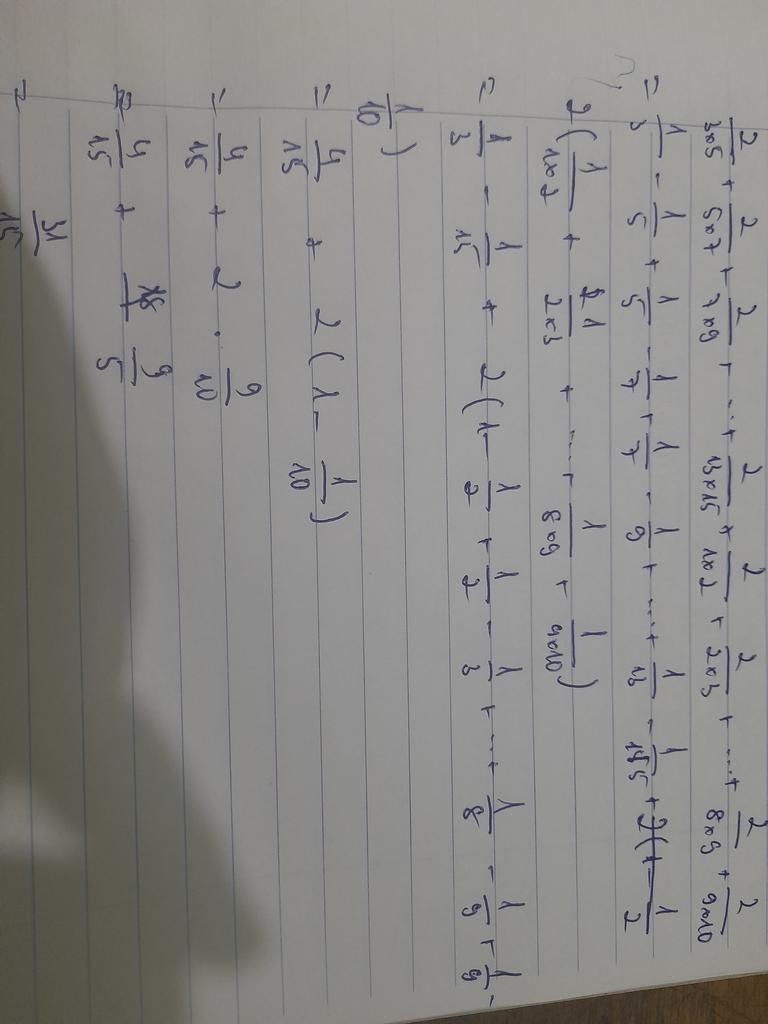 2/3x5 + 2/5x7 + 2/7x9 + ... + 2/13x15 + 2/1x2 + 2/2x3 + ... + 2/8x9 + 2/9x10
= 1/3 - 1/5 + 1/5 - 1/7 + 1/7 - 1/9 + ... + 1/13 - 1/15 +
2(1/1x2 + 1/2x3 + ... + 1/8x9 + 1/9x10)
= 1/3 - 1/15 + 2(1 - 1/2 + 1/2 - 1/3 + ... + 1/8 - 1/9 + 1/9 -
1/10)
= 4/15 + 2(1 - 1/10)
= 4/15 + 2 . 9/10
= 4/15 + 9/5
= 31/15